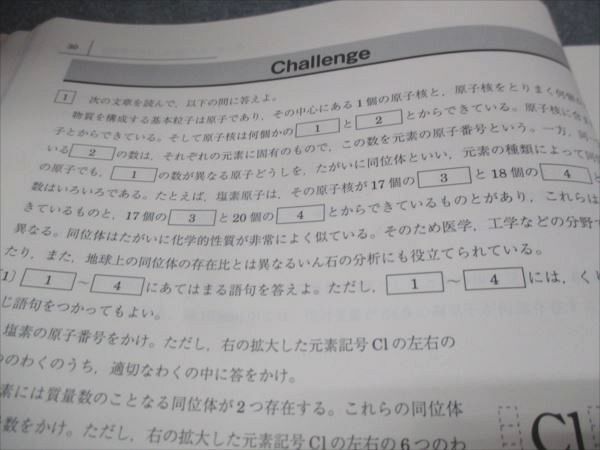 30
Challenge
1 次の文章を読んで，以下の問に答えよ。
物質を構成する基本粒子は原子であり，その中心にある1個の原子核と，原子核をとりまく何個か
子とからできている。そして原子核は何個かの 1 と 2 とからできている。原子核に含
いる 2 の数は，それぞれの元素に固有のもので，この数を元素の原子番号という。一方，同一
の原子でも， 1 の数が異なる原子どうしを，たがいに同位体といい，元素の種類によって同位
数はいろいろである。たとえば，塩素原子は，その原子核が17個の 3 と18個の 4 と
きているものと，17個の 3 と20個の 4 とからできているものとがあり，これらは
異なる。同位体はたがいに化学的性質が非常によく似ている。そのため医学，工学などの分野で
たり，また，地球上の同位体の存在比とは異なるいん石の分析にも役立てられている。
1〕 1 ～ 4 にあてはまる語句を答えよ。ただし， 1 ～ 4 には，くり
じ語句をつかってもよい。
塩素の原子番号をかけ。ただし，右の拡大した元素記号Clの左右の
つのわくのうち，適切なわくの中に答をかけ。
素には質量数のことなる同位体が2つ存在する。これらの同位体
数をかけ。ただし，右の拡大した元素記号Clの左右の6つのわ
Cl